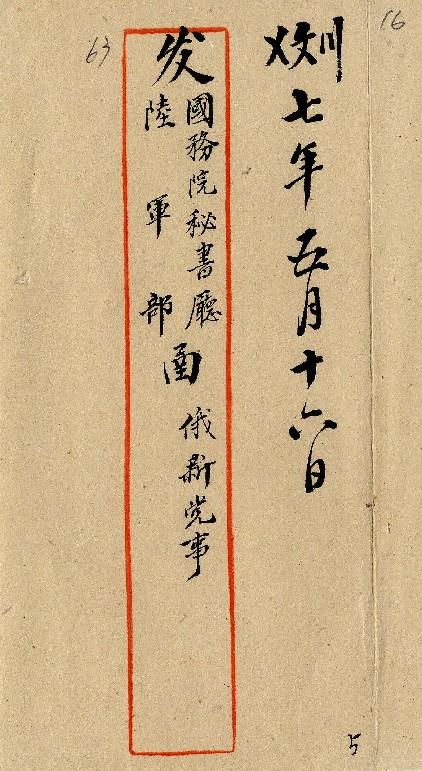 16
七年五月十六日
63
发
國務院秘書廳
陸軍部
函
俄新党事
5